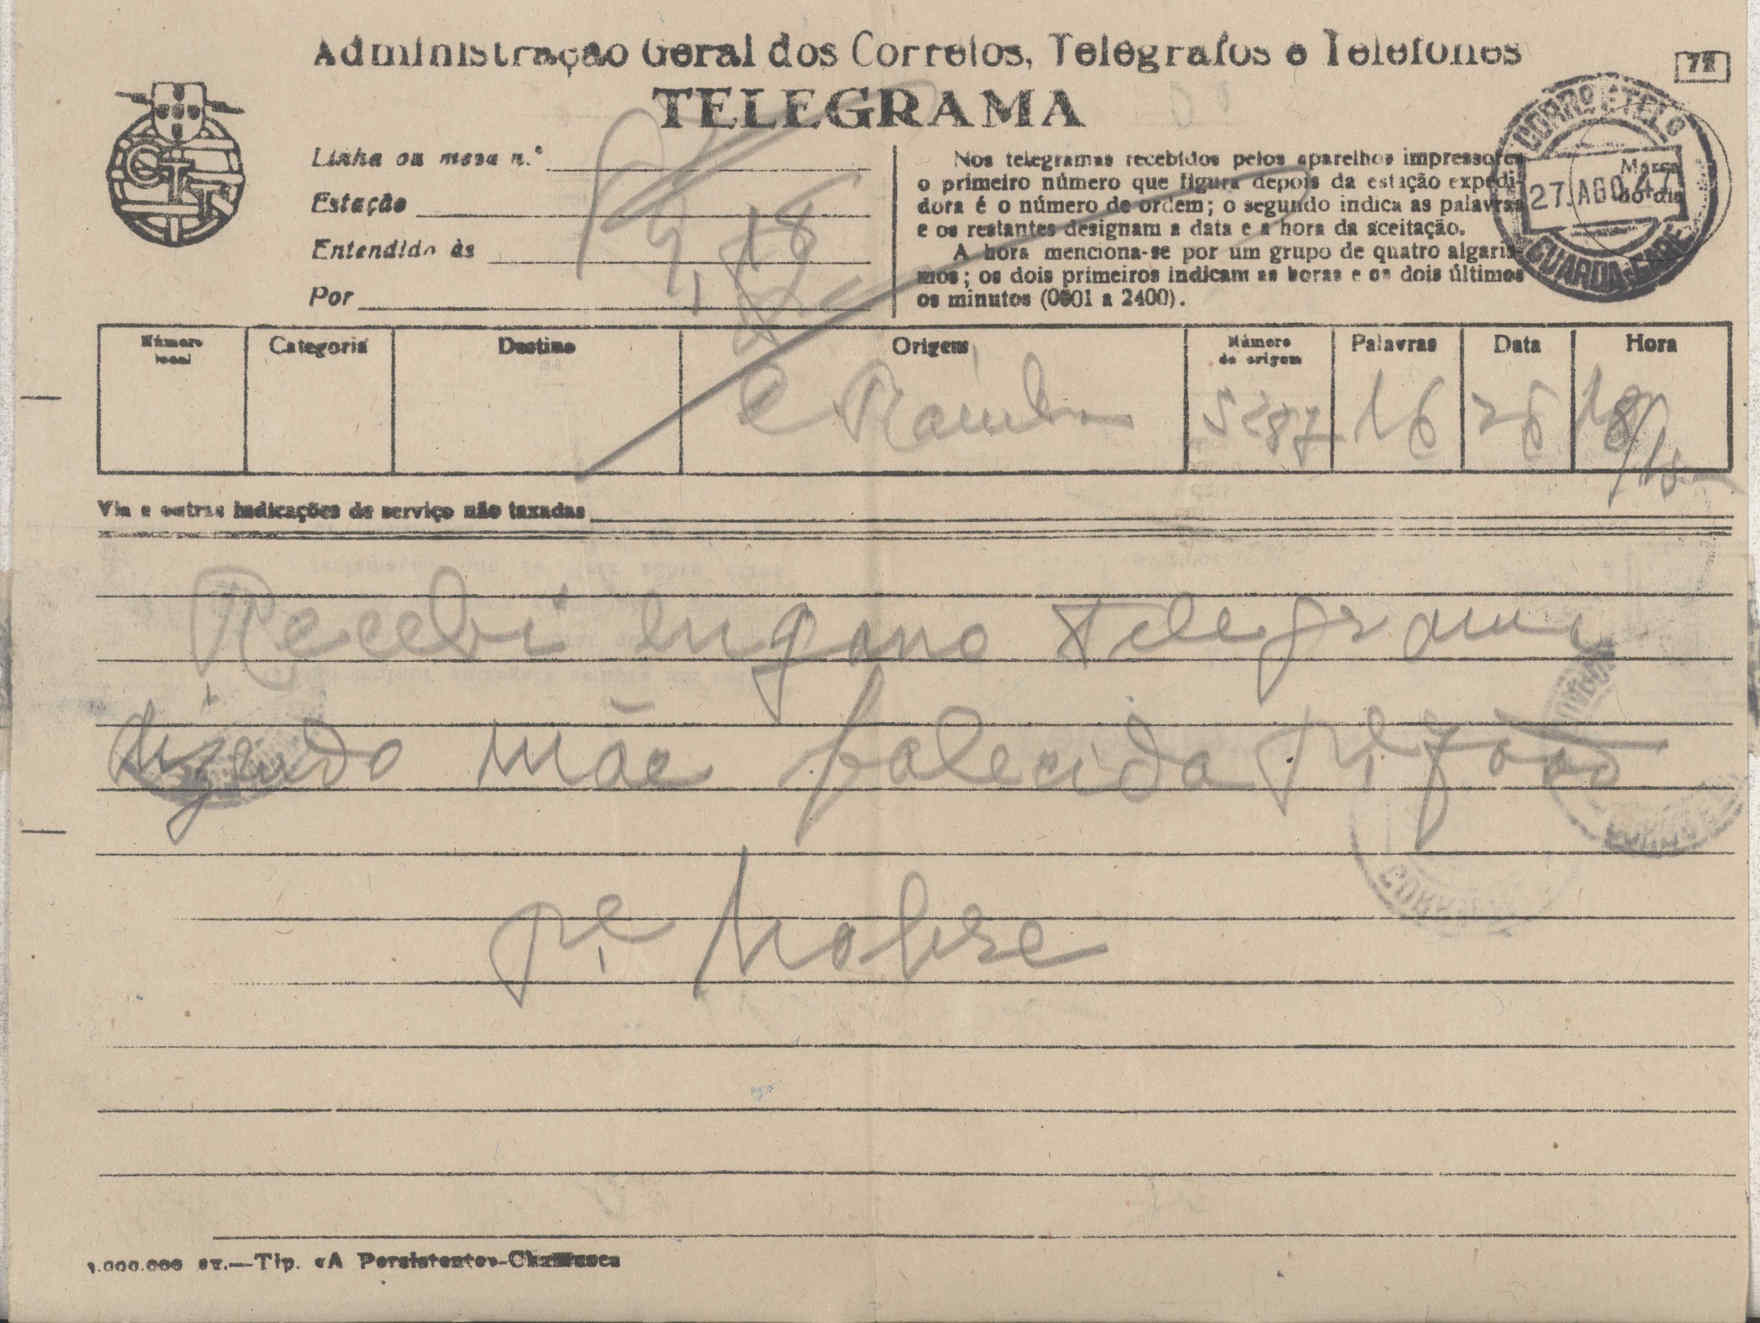 Administração Geral dos Correios, Telégrafos e Telefones
72
TELEGRAMA
Linha ou mesa n.º
Estação
Entendido às
Por
9,18
Nos telegramas recebidos pelos aparelhos impressores
o primeiro número que figura depois da estação expedi-
dora é o número de ordem; o segundo indica as palavras
e os restantes designam a data e a hora da aceitação.
A hora menciona-se por um grupo de quatro algaris-
mos; os dois primeiros indicam as horas e os dois últimos
os minutos (0001 a 2400).
CORRO E TELO
Marca
do dia
27.AGO.47
GUARDA-GARE
Número
local
Categoria
Destino
Origem
Número
de origem
Palavras
Data
Hora
16 26 18/15
Via e outras indicações de serviço não taxadas
Recebi engano telegrama
dizendo mãe falecida Pe João
Pe Nobre
1.000.000 ex.—Tip. «A Persistente»-Chamusca